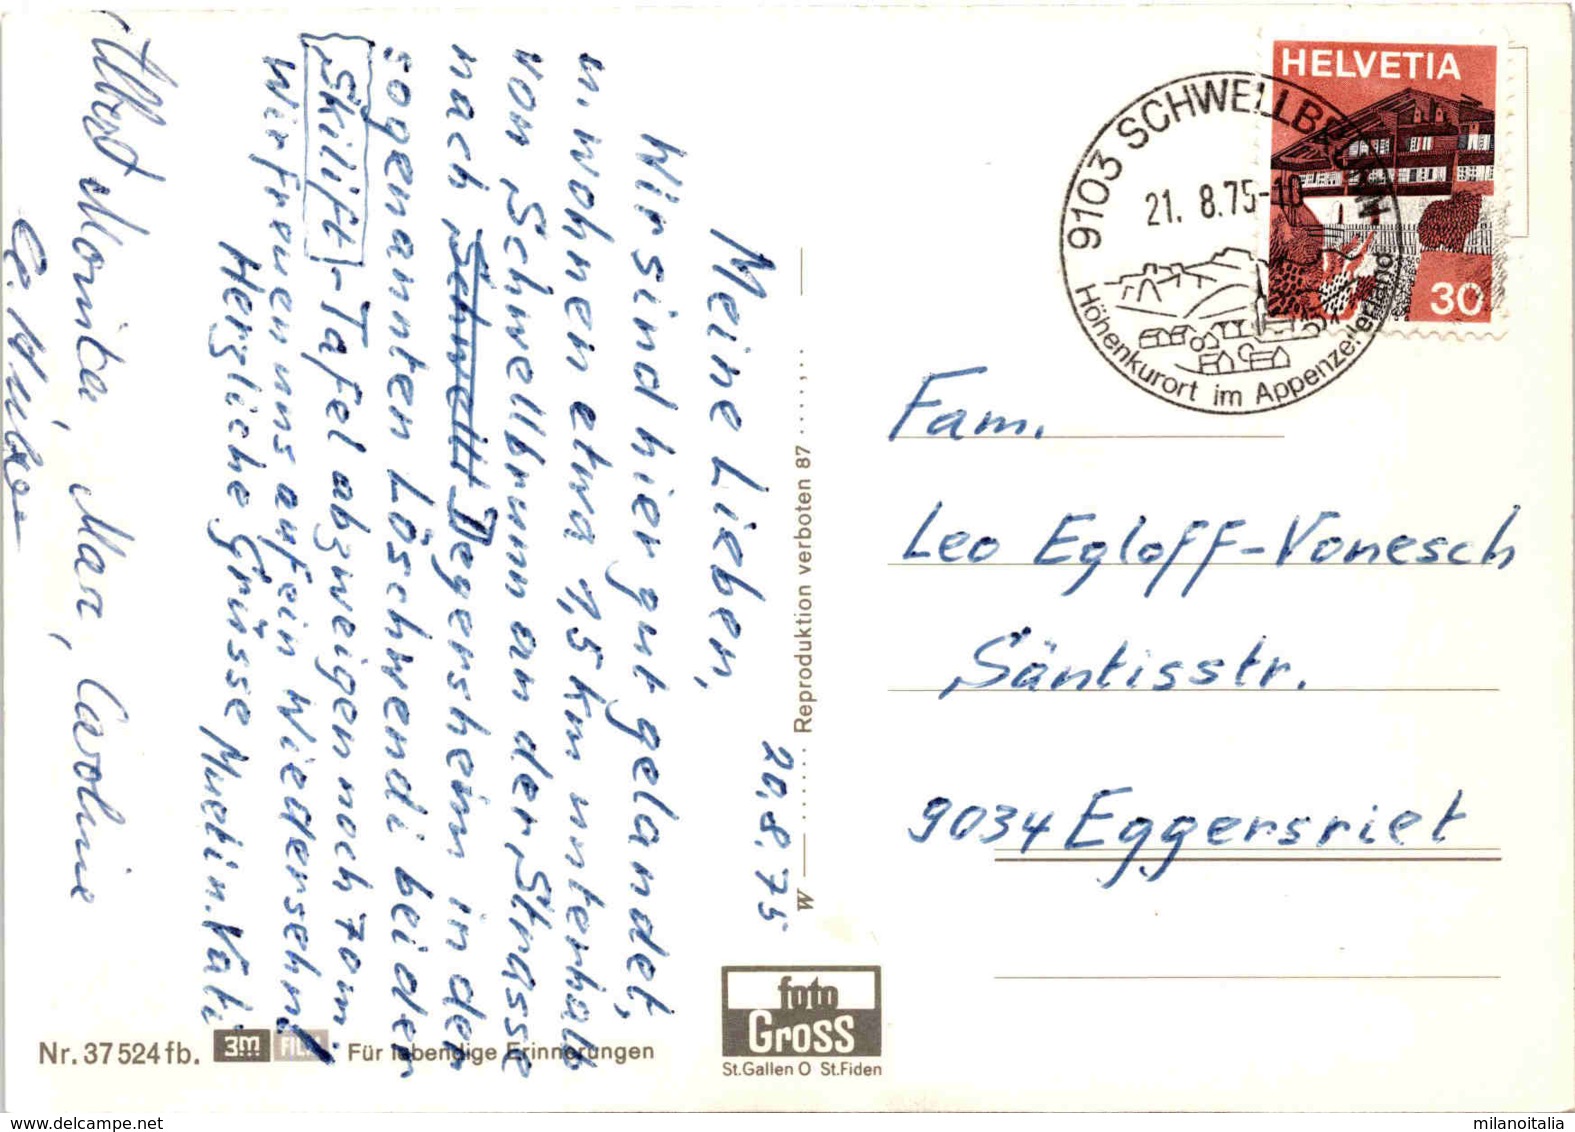 20.8.75
Meine Lieben,
Wir sind hier gut gelandet,
u. wohnen etwa 1,5 km unterhalb
von Schwellbrunn an der Strasse
nach Degersheim in der
sogenannten Löschwendi bei der
Skilift-Tafel abzweigen noch 70m.
Wir freuen uns auf ein Wiedersehn!
Herzliche Grüsse Mueti n. Vati
Albert Monika, Marc, Caroline
HELVETIA
30
9103 SCHWELLBRUNN
21. 8.75-10
Höhenkurort im Appenzellerland
Fam.
Leo Egloff-Vonesch
Säntisstr.
9034 Eggersriet
W
Reproduktion verboten 87
foto
Gross
St.Gallen O St.Fiden
Nr. 37524fb.
3m FILM
Für lebendige Erinnerungen
milanoitalia